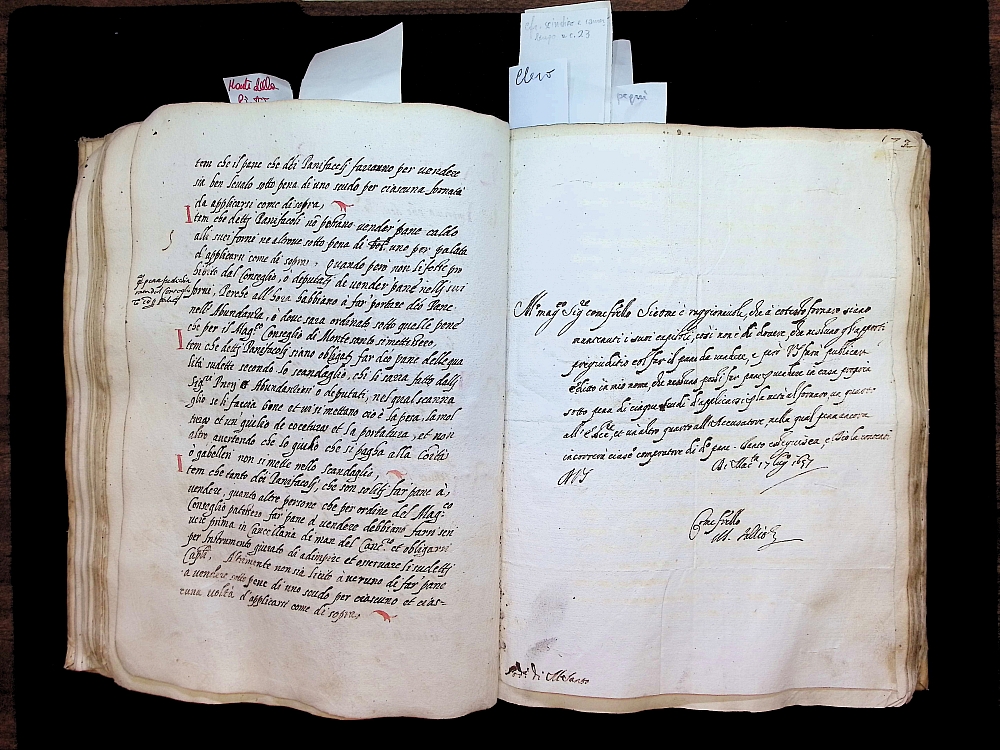 Monti della
Pietà
cfr. sindico e
tempo n. c. 23
Clero
pegni
tem che il pane che detti Panifacoli faranno per vendere
sia ben levato sotto pena di uno scudo per ciascuna fornata
da applicarsi come di sopra,
Item che detti Panifacoli nõ possano vender pane caldo
alli suoi forni ne altrove sotto pena di uno per palata
d'applicarsi come di sopra, Quando però non li fosse pro
hibito dal Conseglio, ò deputati de vender pane nelli suoi
forni, Perche all'hora habbiano à far portare detto Pane
nell'Abundanza, ò dove sara ordinato sotto quelle pene
che per il Mag.co Conseglio di Montesanto si mettessero,
Item che detti Panifacoli siano obligati far deo pane delle qua
lità sudette secondo lo scandaglio, che si sarra fatto dalli
Sig.ri Priori et Abundantieri ò deputati, nel qual scanna
glio se li faccia bono et vi si mettano cioè la pesa, la mol
tura et un giulio de cocetura et la portatura, et non
altro avertendo che lo giulio che si pagha alla Cōità
ò gabellieri non si mette nello scandaglio,
Item che tanto detti Panifacoli, che son soliti far pane à
vendere, quanto altre persone che per ordine del Mag.co
Conseglio potessero far pane à vendere debbiano farsi scri
vere prima in Cancellaria di man del Canc.ro et obligarsi
per Instrumento giurato di adimpire et osservare li sudetti
Capli, Altrimente non sia licito à veruno di far pane
a vendere sotto pena di uno scudo per ciascuno et cias-
cuna volta d'applicarsi come di sopra
172
M.to mag.co Sig.re come fratello Si come è raggionevole, che à cotesto fornaro siano
mantenuti i suoi capitoli, così non è di dovere, che nessuno gl'apporti
pregiuditio col far il pane da vendere, e però VS farà publicar
Editto in mio nome, che nessuno possi far pane p vendere in casa propria
sotto pena di cinque scudi d'applicarsi p la metà al fornaro, un quarto
all' et un altro quarto all'Accusatore, nella qual pena ancora
incorrerà ciasc.o compratore di d.o pane. Tanto eseguisca, e Dio la contenti
Di Mac.ta 17 1637
VS
Come fratello
Pod.tà di M. Santo